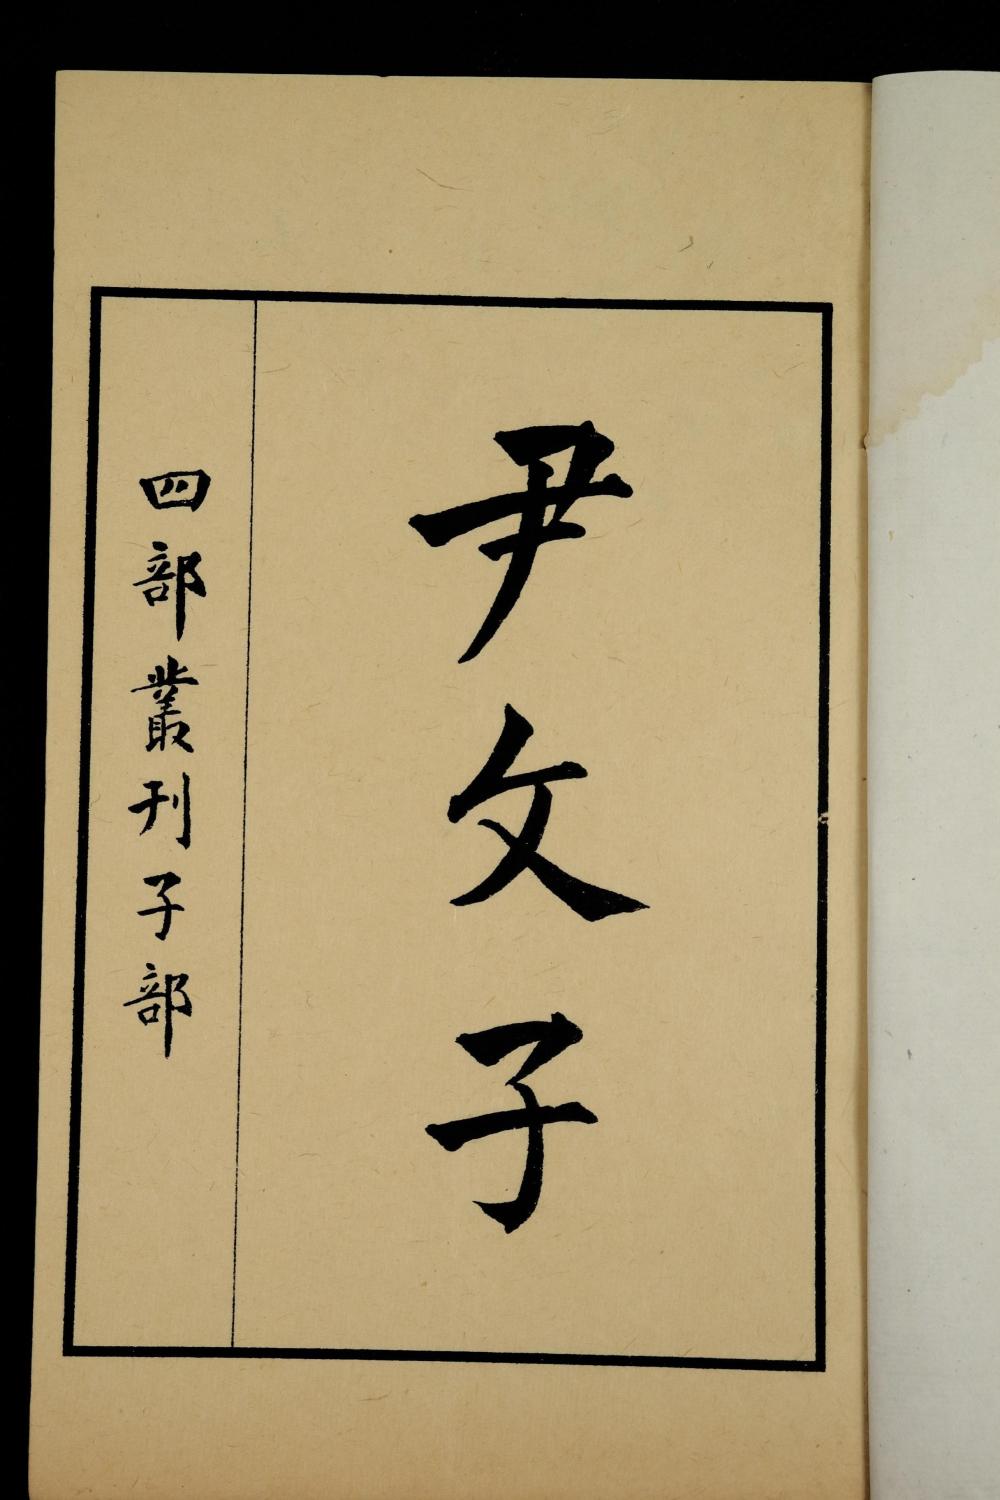 尹文子
四部叢刊子部